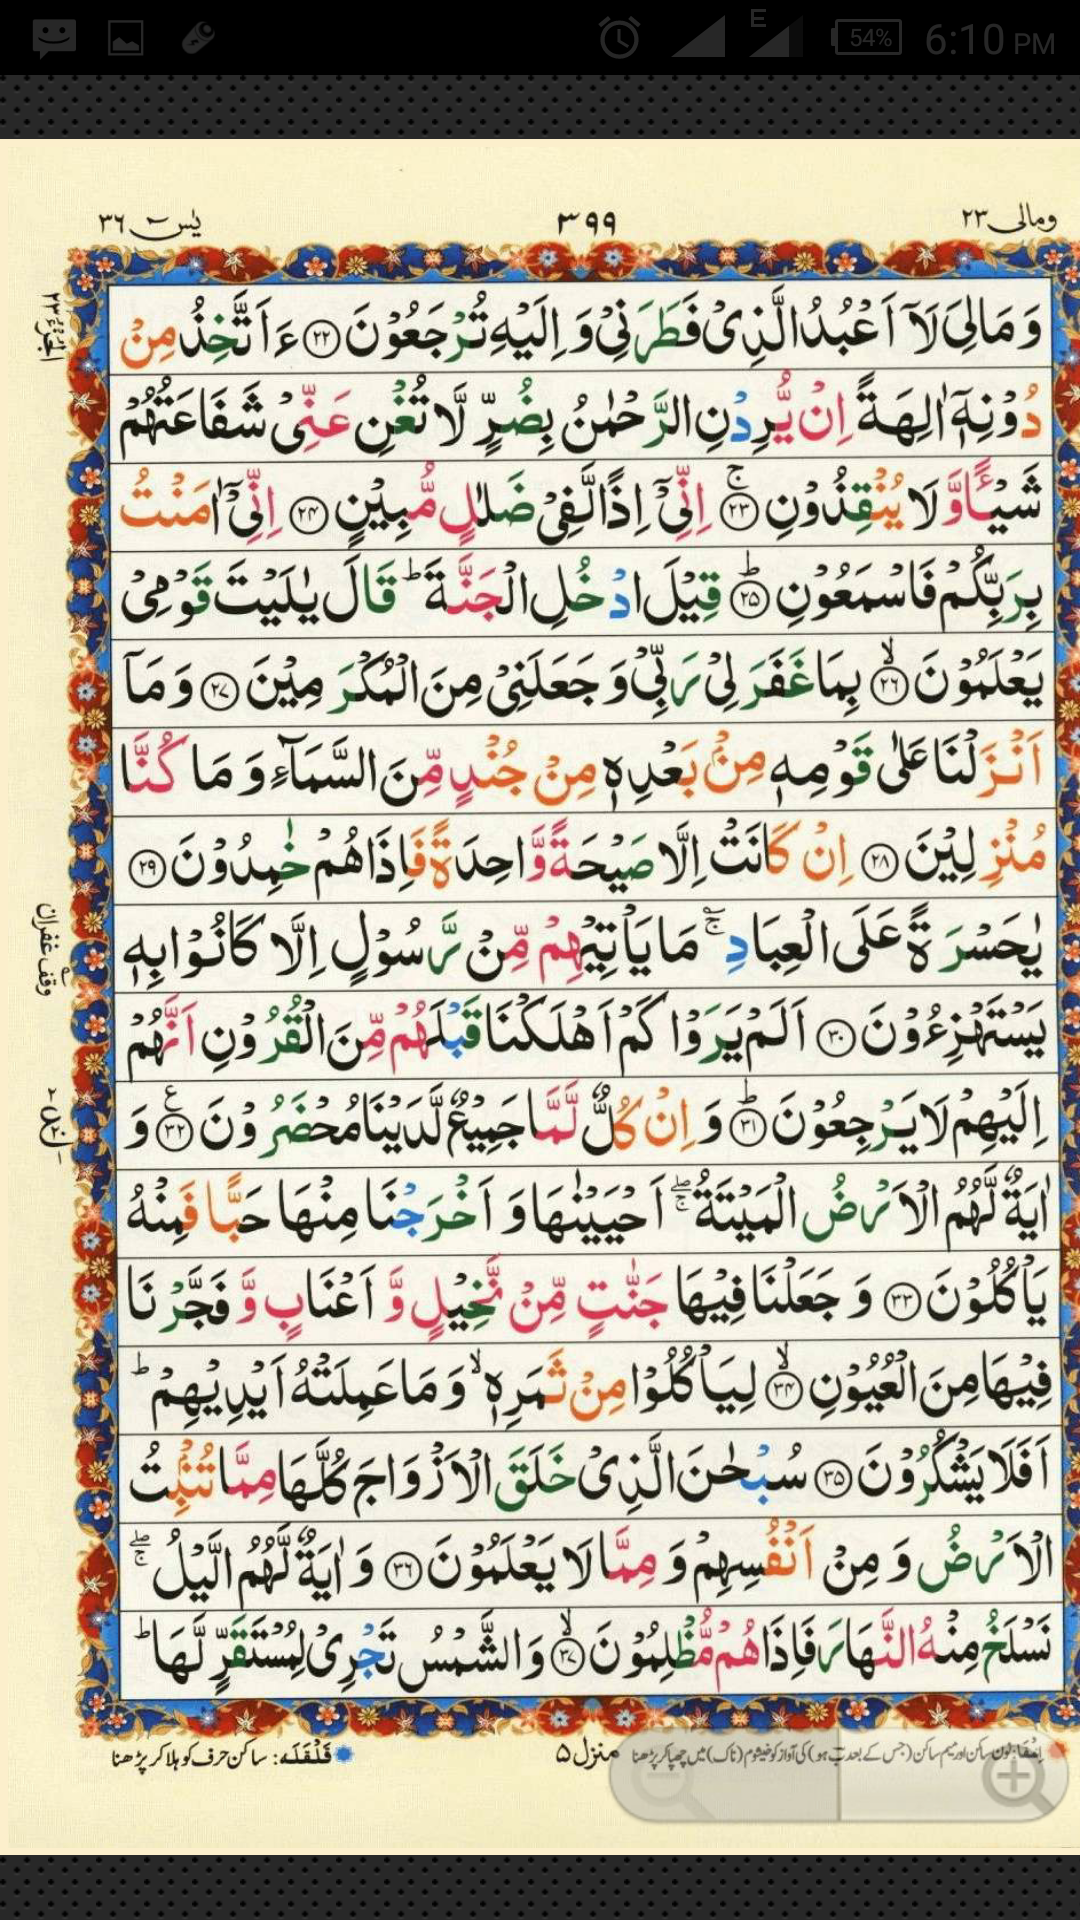 54% 6:10 PM
E
ومالی ۲۳
۳۹۹
یٰسٓ ۳۶
وَمَالِیَ لَاۤ اَعْبُدُ الَّذِیْ فَطَرَنِیْ وَ اِلَیْهِ تُرْجَعُوْنَ ۲۲ ءَاَتَّخِذُ مِنْ
دُوْنِهٖۤ اٰلِهَةً اِنْ یُّرِدْنِ الرَّحْمٰنُ بِضُرٍّ لَّا تُغْنِ عَنِّیْ شَفَاعَتُهُمْ
شَیْـًٔا وَّ لَا یُنْقِذُوْنِ ۚ ۲۳ اِنِّیْۤ اِذًا لَّفِیْ ضَلٰلٍ مُّبِیْنٍ ۲۴ اِنِّیْۤ اٰمَنْتُ
بِرَبِّكُمْ فَاسْمَعُوْنِ ؕ ۲۵ قِیْلَ ادْخُلِ الْجَنَّةَ ؕ قَالَ یٰلَیْتَ قَوْمِیْ
یَعْلَمُوْنَ ۙ ۲۶ بِمَا غَفَرَ لِیْ رَبِّیْ وَ جَعَلَنِیْ مِنَ الْمُكْرَمِیْنَ ۲۷ وَ مَاۤ
اَنْزَلْنَا عَلٰی قَوْمِهٖ مِنْۢ بَعْدِهٖ مِنْ جُنْدٍ مِّنَ السَّمَآءِ وَ مَا كُنَّا
مُنْزِلِیْنَ ۲۸ اِنْ كَانَتْ اِلَّا صَیْحَةً وَّاحِدَةً فَاِذَا هُمْ خٰمِدُوْنَ ۲۹
یٰحَسْرَةً عَلَی الْعِبَادِ ۚ مَا یَاْتِیْهِمْ مِّنْ رَّسُوْلٍ اِلَّا كَانُوْا بِهٖ
یَسْتَهْزِءُوْنَ ۳۰ اَلَمْ یَرَوْا كَمْ اَهْلَكْنَا قَبْلَهُمْ مِّنَ الْقُرُوْنِ اَنَّهُمْ
اِلَیْهِمْ لَا یَرْجِعُوْنَ ؕ ۳۱ وَ اِنْ كُلٌّ لَّمَّا جَمِیْعٌ لَّدَیْنَا مُحْضَرُوْنَ ۳۲ وَ
اٰیَةٌ لَّهُمُ الْاَرْضُ الْمَیْتَةُ ۖۚ اَحْیَیْنٰهَا وَ اَخْرَجْنَا مِنْهَا حَبًّا فَمِنْهُ
یَاْكُلُوْنَ ۳۳ وَ جَعَلْنَا فِیْهَا جَنّٰتٍ مِّنْ نَّخِیْلٍ وَّ اَعْنَابٍ وَّ فَجَّرْنَا
فِیْهَا مِنَ الْعُیُوْنِ ۙ ۳۴ لِیَاْكُلُوْا مِنْ ثَمَرِهٖ ۙ وَ مَا عَمِلَتْهُ اَیْدِیْهِمْ ؕ
اَفَلَا یَشْكُرُوْنَ ۳۵ سُبْحٰنَ الَّذِیْ خَلَقَ الْاَزْوَاجَ كُلَّهَا مِمَّا تُنْۢبِتُ
الْاَرْضُ وَ مِنْ اَنْفُسِهِمْ وَ مِمَّا لَا یَعْلَمُوْنَ ۳۶ وَ اٰیَةٌ لَّهُمُ الَّیْلُ ۖۚ
نَسْلَخُ مِنْهُ النَّهَارَ فَاِذَا هُمْ مُّظْلِمُوْنَ ۙ ۳۷ وَ الشَّمْسُ تَجْرِیْ لِمُسْتَقَرٍّ لَّهَا ؕ
الجزء ۲۳
وقف غفران
اِخفَا: نون ساکن اور میم ساکن (جس کے بعد ب ہو) کی آواز کو خیشوم (ناک) میں چھپا کر پڑھنا
منزل ۵
قَلْقَلَه: ساکن حرف کو ہلا کر پڑھنا